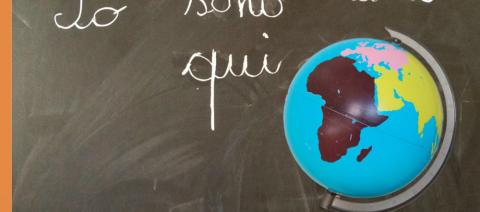 Io sono
qui